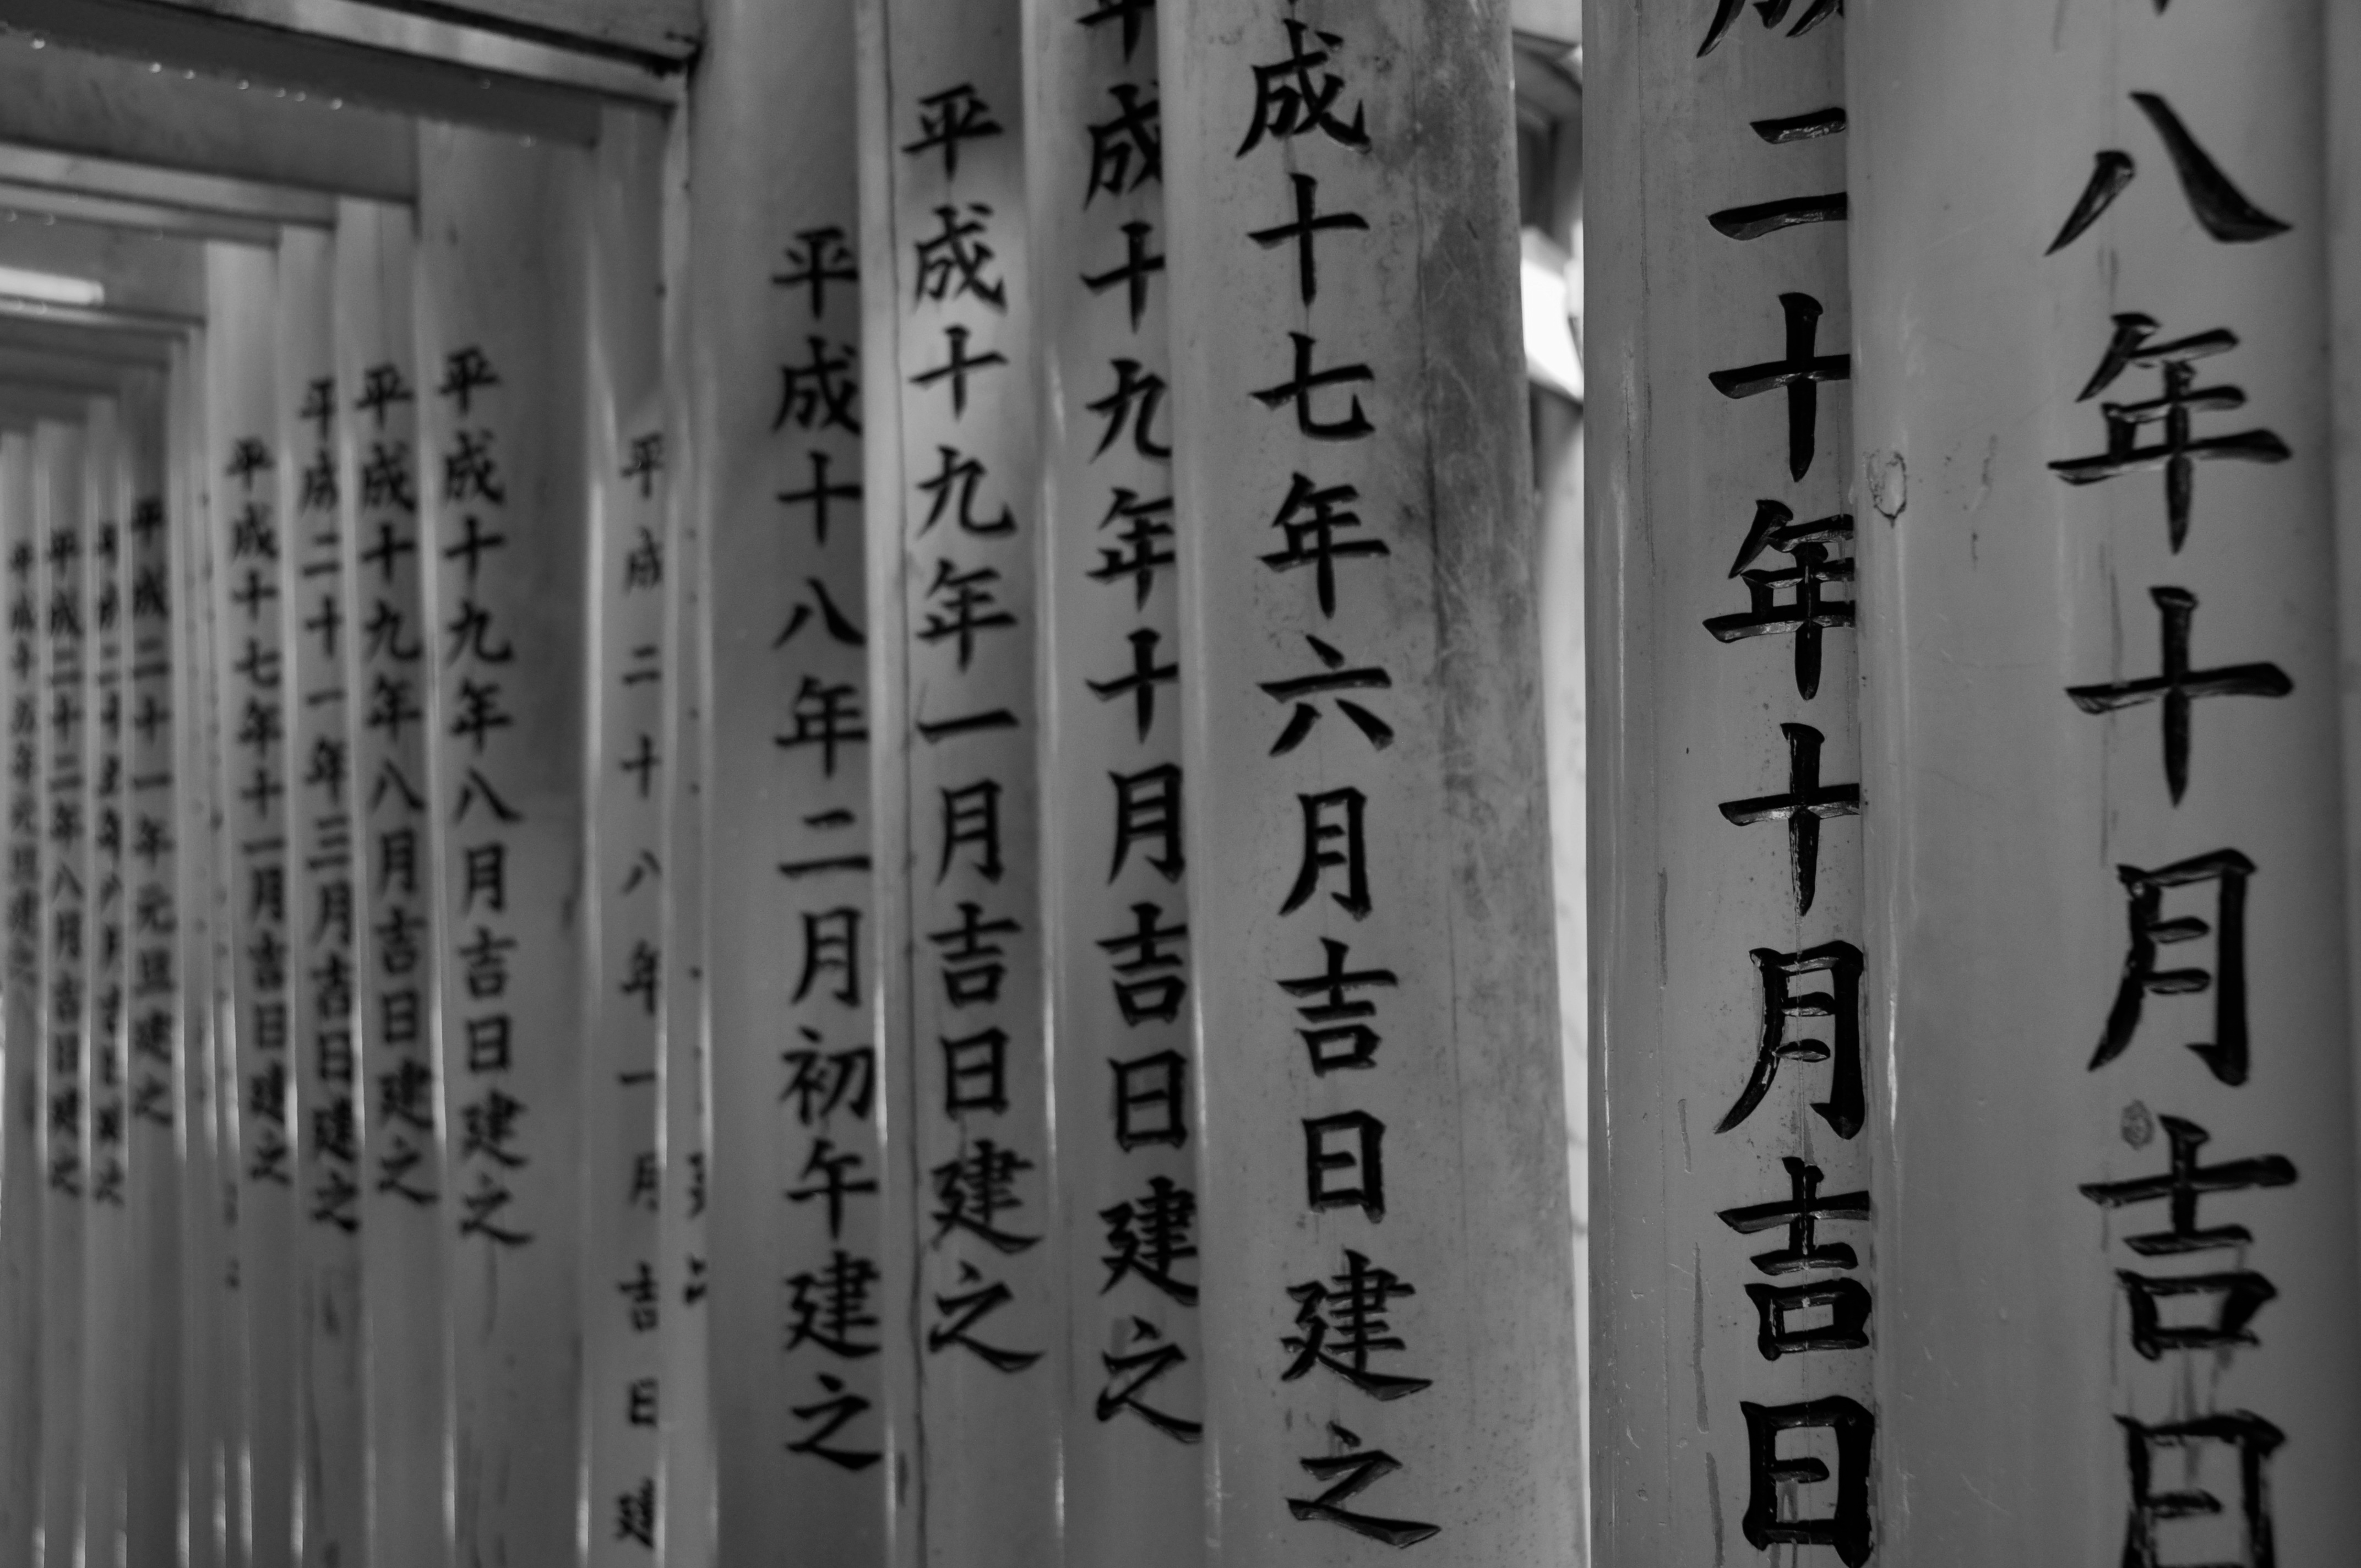 八年十月吉日
成二十年十月吉日
成十七年六月吉日建之
平成十九年十月吉日建之
平成十九年一月吉日建之
平成十八年二月初午建之
平成二十八年一月吉日建
平成十九年八月吉日建之
平成十九年八月吉日建之
平成二十一年三月吉日建之
平成十七年十一月吉日建之
平成二十一年元旦建之
平成二十二年八月吉日建之